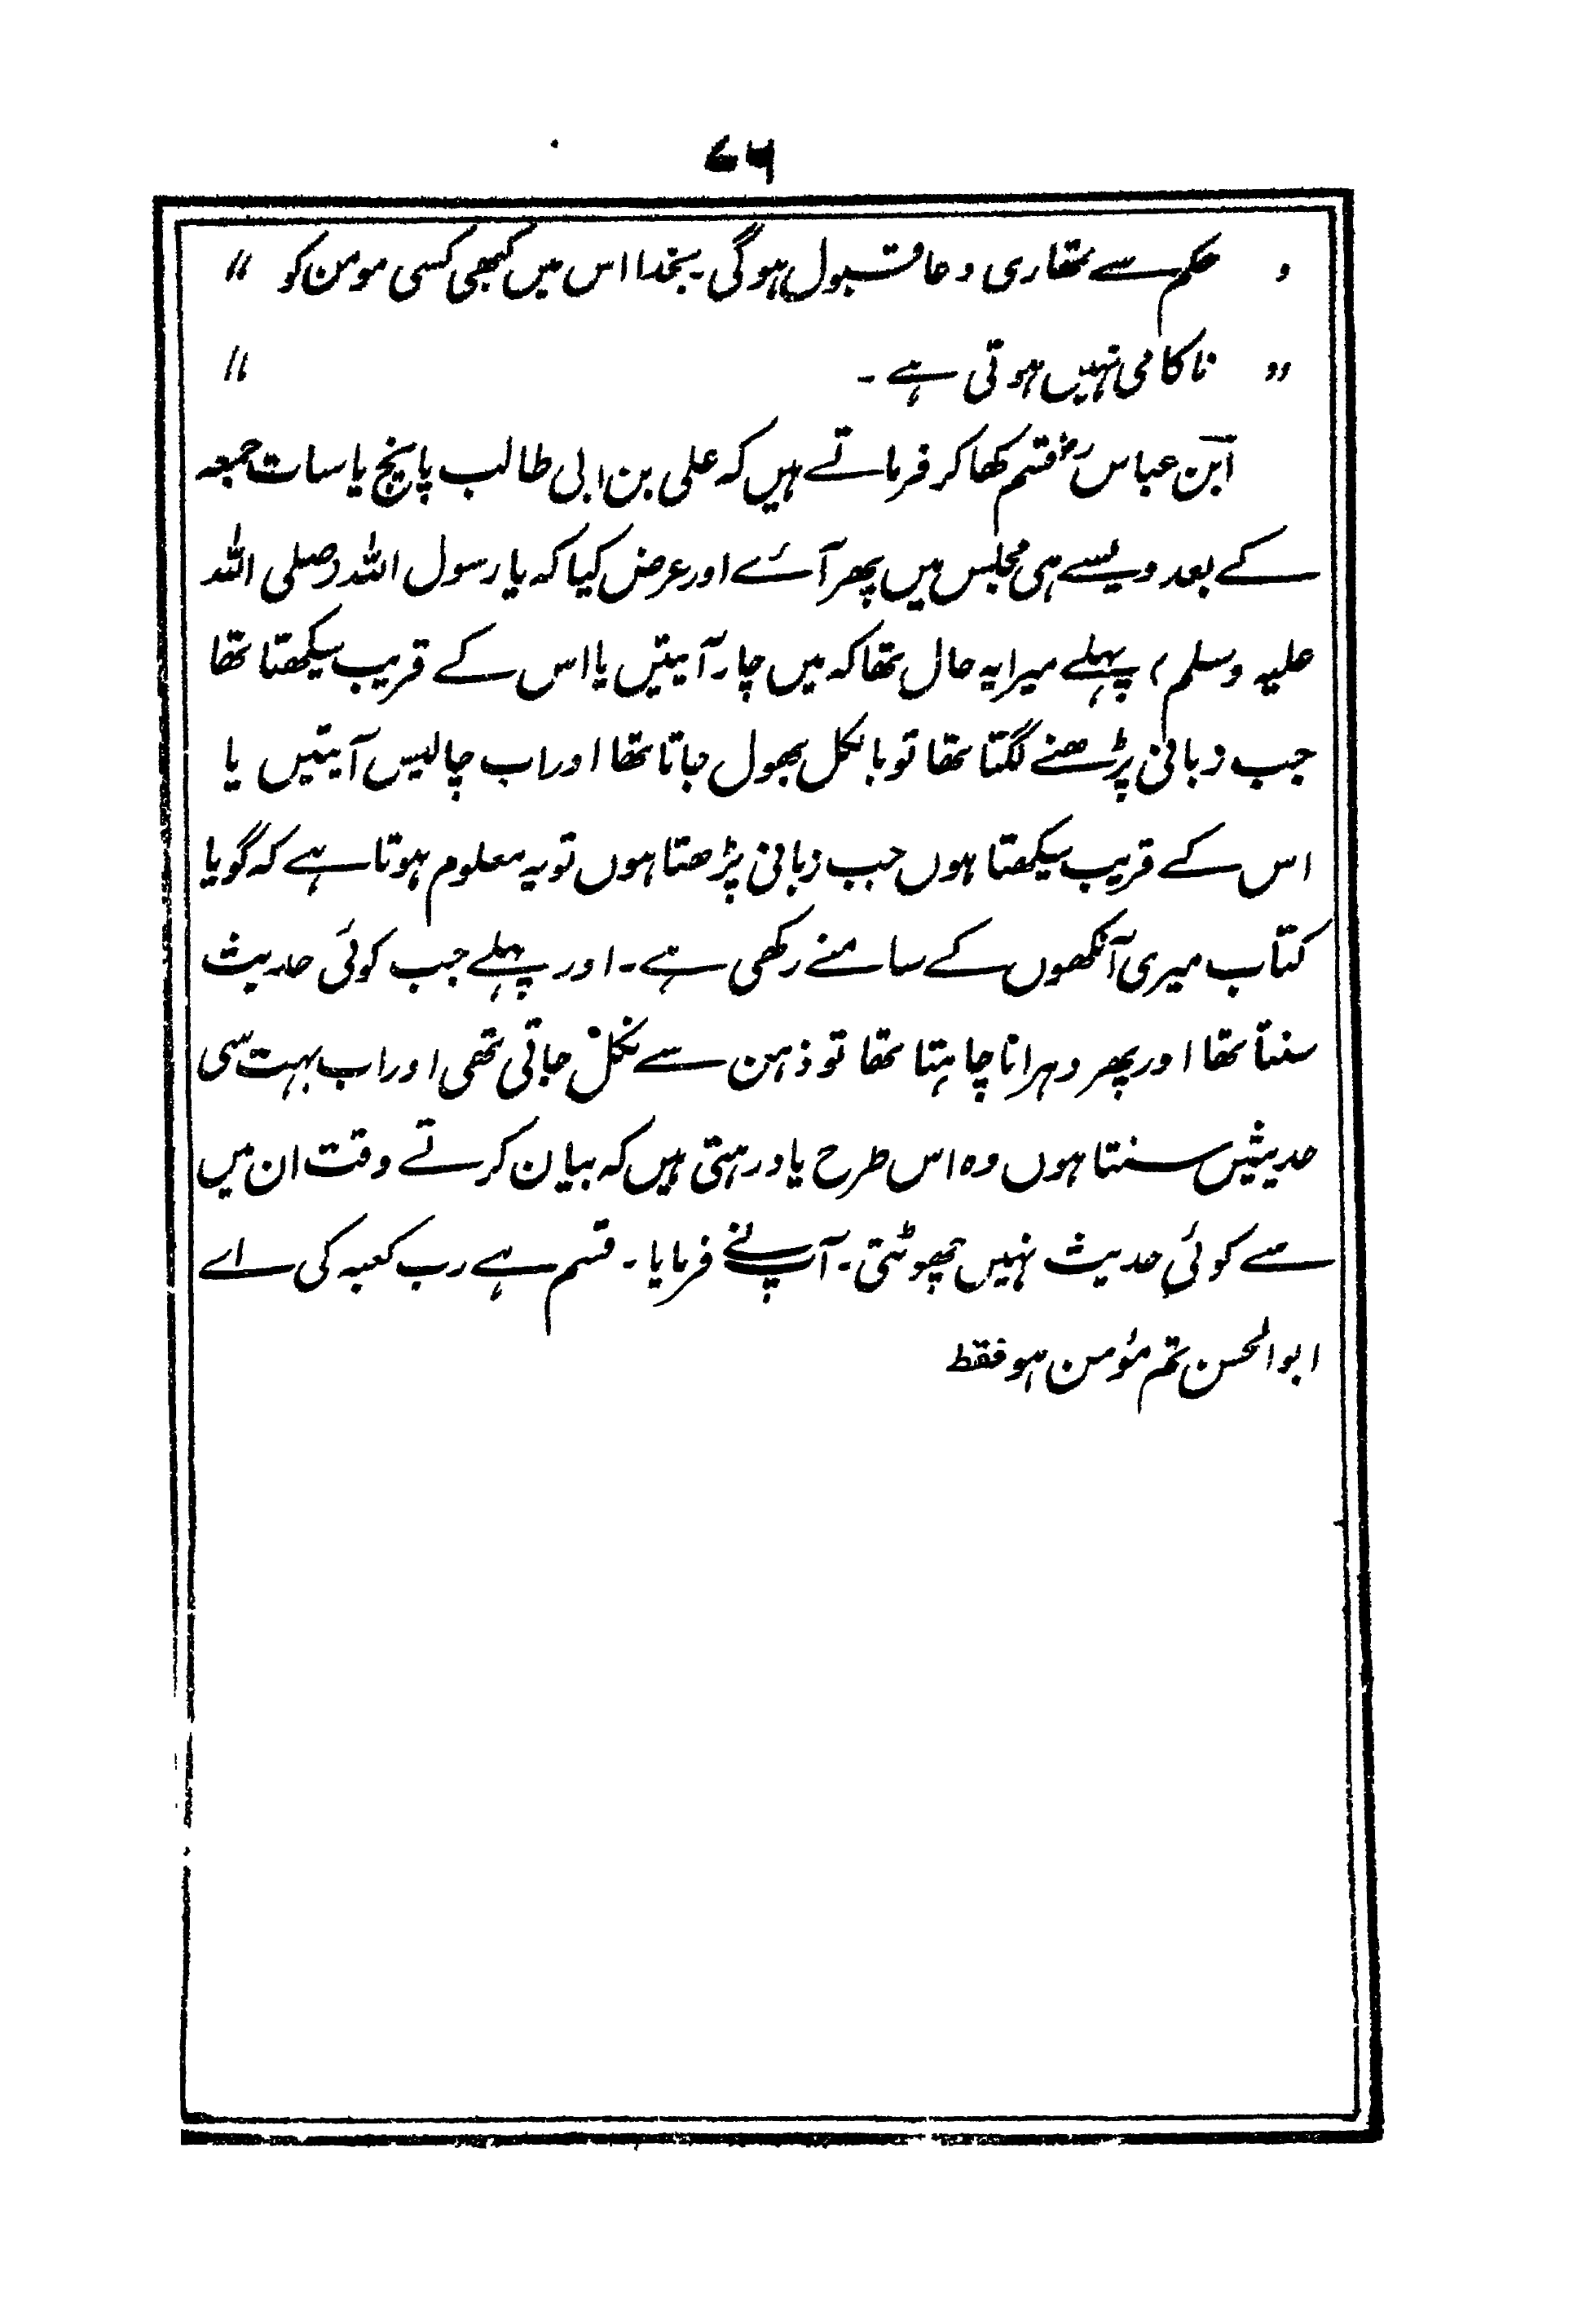 ۷۶
„ حکم سے تمھاری دعا قبول ہوگی۔ بخدا اس میں کبھی کسی مومن کو "
„ ناکامی نہیں ہوتی ہے۔ "
ابن عباس رض قسم کھا کر فرماتے ہیں کہ علی بن ابی طالب پانچ یا سات جمعہ
کے بعد ویسے ہی مجلس میں پھر آئے اور عرض کیا کہ یا رسول اللہ (صلی اللہ
علیہ وسلم) پہلے میرا یہ حال تھا کہ میں چار آیتیں یا اس کے قریب سیکھتا تھا
جب زبانی پڑھنے لگتا تھا تو بالکل بھول جاتا تھا اور اب چالیس آیتیں یا
اس کے قریب سیکھتا ہوں جب زبانی پڑھتا ہوں تو یہ معلوم ہوتا ہے کہ گویا
کتاب میری آنکھوں کے سامنے رکھی ہے۔ اور پہلے جب کوئی حدیث
سنتا تھا اور پھر دہرانا چاہتا تھا تو ذہن سے نکل جاتی تھی اور اب بہت سی
حدیثیں سنتا ہوں وہ اس طرح یاد رہتی ہیں کہ بیان کرتے وقت ان میں
سے کوئی حدیث نہیں چھوٹتی۔ آپ نے فرمایا۔ قسم ہے رب کعبہ کی اے
ابوالحسن تم مؤمن ہو فقط